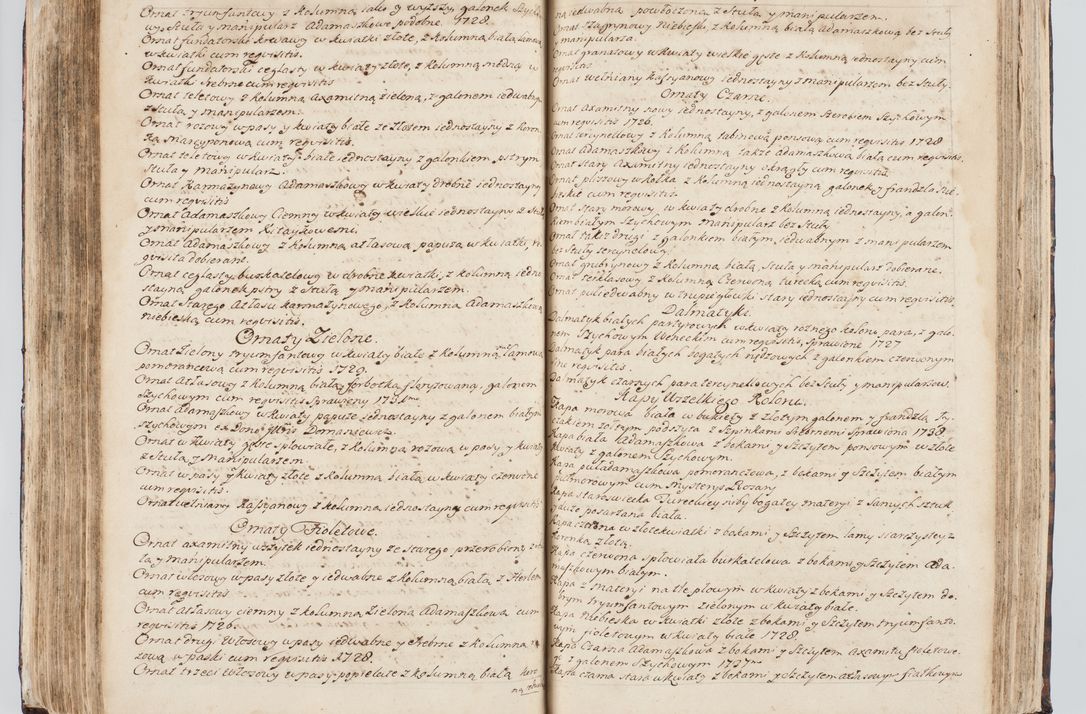 Ornat tryumfantowy z kolumną jako y wyższy, galonek szych
wy, stuła y manipularz adamaszkowe podobne. 1728.
Ornat fundatorski krwawy w kwiatki złote, z kolumną białą
w kwiatki cum requisitis.
Ornat fundatorski ceglasty w kwiaty złote, z kolumną w
kwiatki srebrne cum requisitis
Ornat teletowy z kolumną axamitną zieloną, z galonem iedwabnym
z stułą y manipularzem.
Ornat rozowy w pasy y kwiaty białe ze złotem iednostayny z
cum requisitis.
Ornat teletowy w kwiaty białe iednostayny z galonkiem pstrym
stuła y manipularz.
Ornat karmazynowy adamaszkowy w kwiaty drobne iednostayny
cum requisitis
Ornat adamaszkowy ciemny w kwiaty wielkie iednostayny z stułą
y manipularzem kitaykowemi.
Ornat adamaszkowy z kolumną atłasową, papuzą w kwiatki, re
quisita dobierane.
Ornat ceglasty burkatelowy w drobne kwiatki, z kolumną iedno
stayną galonek pstry z stułą y manipularzem.
Ornat starego atłasu karmazynowego, z kolumną adamaszkową
niebieską cum requisitis.
Ornaty Zielone.
Ornat zielony tryumfantowy w kwiaty białe z kolumną lamową
pomeranczową cum requisitis 1729.
Ornat atłasowy z kolumną białą forbotką galonem
szychowym cum requisitis sprawiony
Ornat adamaszkowy w kwiaty papuze iednostayny z galonem białym
szychowym ex Dono
Ornat w kwiaty złote spłowiałe, z kolumną rozową w pasy, y kwiaty
z stułą y manipularzem.
Ornat w pasy y kwiaty złote z kolumną białą w kwiaty czerwone
cum requisitis.
Ornat wełniany kasztanowy z kolumną iednostayną cum requisitis
Ornaty Fioletowe.
Ornat axamitny wszytek iednostayny ze starego przerobiony, z stu
łą y manipularzem.
Ornat włosowy w pasy złote y iedwabne z kolumną białą z
cum requisitis
Ornat atłasowy ciemny z kolumną zieloną adamaszkową cum
requisitis 1726.
Ornat drugi włosowy w pasy iedwabne y srebrne z kolumną ro
zową w paski cum requisitis 1728.
Ornat trzeci włosowy w pasy popielate z kolumną białą
na iedwabną z stułą y manipularzem.
Ornat szagrynowy niebieski, z kolumną białą adamaszkową bez stuły
y manipularza.
Ornat granatowy w kwiaty wielkie gęste z kolumną iednostayny cum
requisitis
Ornat wełniany kasztanowy iednostayny z manipularzem bez stuły.
Ornaty Czarne.
Ornat axamitny nowy iednostayny, z galonem szerokim szychowym
cum requisitis 1726.
Ornat tercynellowy z kolumną tabinową ponsową cum requisitis 1728
Ornat adamaszkowy z kolumną także adamaszkową białą cum requisitis.
Ornat stary axamitny iednostayny okrągły cum requisitis.
Ornat pliszowy w kołka z kolumną iednostayną galonek y frandzla
cum requisitis
Ornat stary morowy w kwiaty drobne z kolumną iednostayny, a galon
kiem białym szychowym manipularz bez stuły
Ornat także drugi z galonkiem białym iedwabnym z manipularzem
bez stuły tercynelowy.
Ornat grubrynowy z kolumną białą, stuła y manipularz dobierane.
Ornat z kolumną czerwoną turecką cum requisitis.
Ornat pułiedwabny w trupie główki stary iednostayny cum requisitis.
Dalmatyki.
Dalmatyk białych parterowych w kwiaty roznego koloru, para, z galo
nem szychowym weneckim cum requisitis, sprawione 1727
Dalmatyk para białych bogatych z galonkiem czerwonym
sine requisitis.
Dalmatyk czarnych para tercynellowych bez stuły y manipularzow.
Kapy Wszelkiego Koloru.
Kapa morowa biała w bukiety z złotym galonem y frandzlą
żołtym podszyta z szpinkami srebrnemi sprawiona 1738
Kapa biała adamaszkowa z bokami y szczytem ponsowym w złote
kwiaty z galonem szychowym.
Kapa puładamaszkowa pomeranczowa, z bokami y szczytem białym
cum Mysterys Rosary.
Kapa staroswiecka turecka niby bogatey materyi z samych sztuk
poszarzana biała.
Kapa czarna w złote kwiatki z bokami y szczytem lamy szarzystey z
złotą.
Kapa czerwona spłowiała burkatelowa z bokami y szczytem ada
maszkowym białym.
Kapa z materyi na tle płowym w kwiaty z bokami y szczytem do
brym tryumfantowym zielonym w kwiaty białe.
Kapa niebieska w kwiatki złote z bokami y szczytem tryumfanto
wym fioletowym w kwiaty białe 1728.
Kapa czarna adamaszkowa z bokami y szczytem axamitu fioletowe
go z galonem szychowym 1737
Kapa czarna stara w kwiaty z bokami y szczytem atłasowym fiałkowym